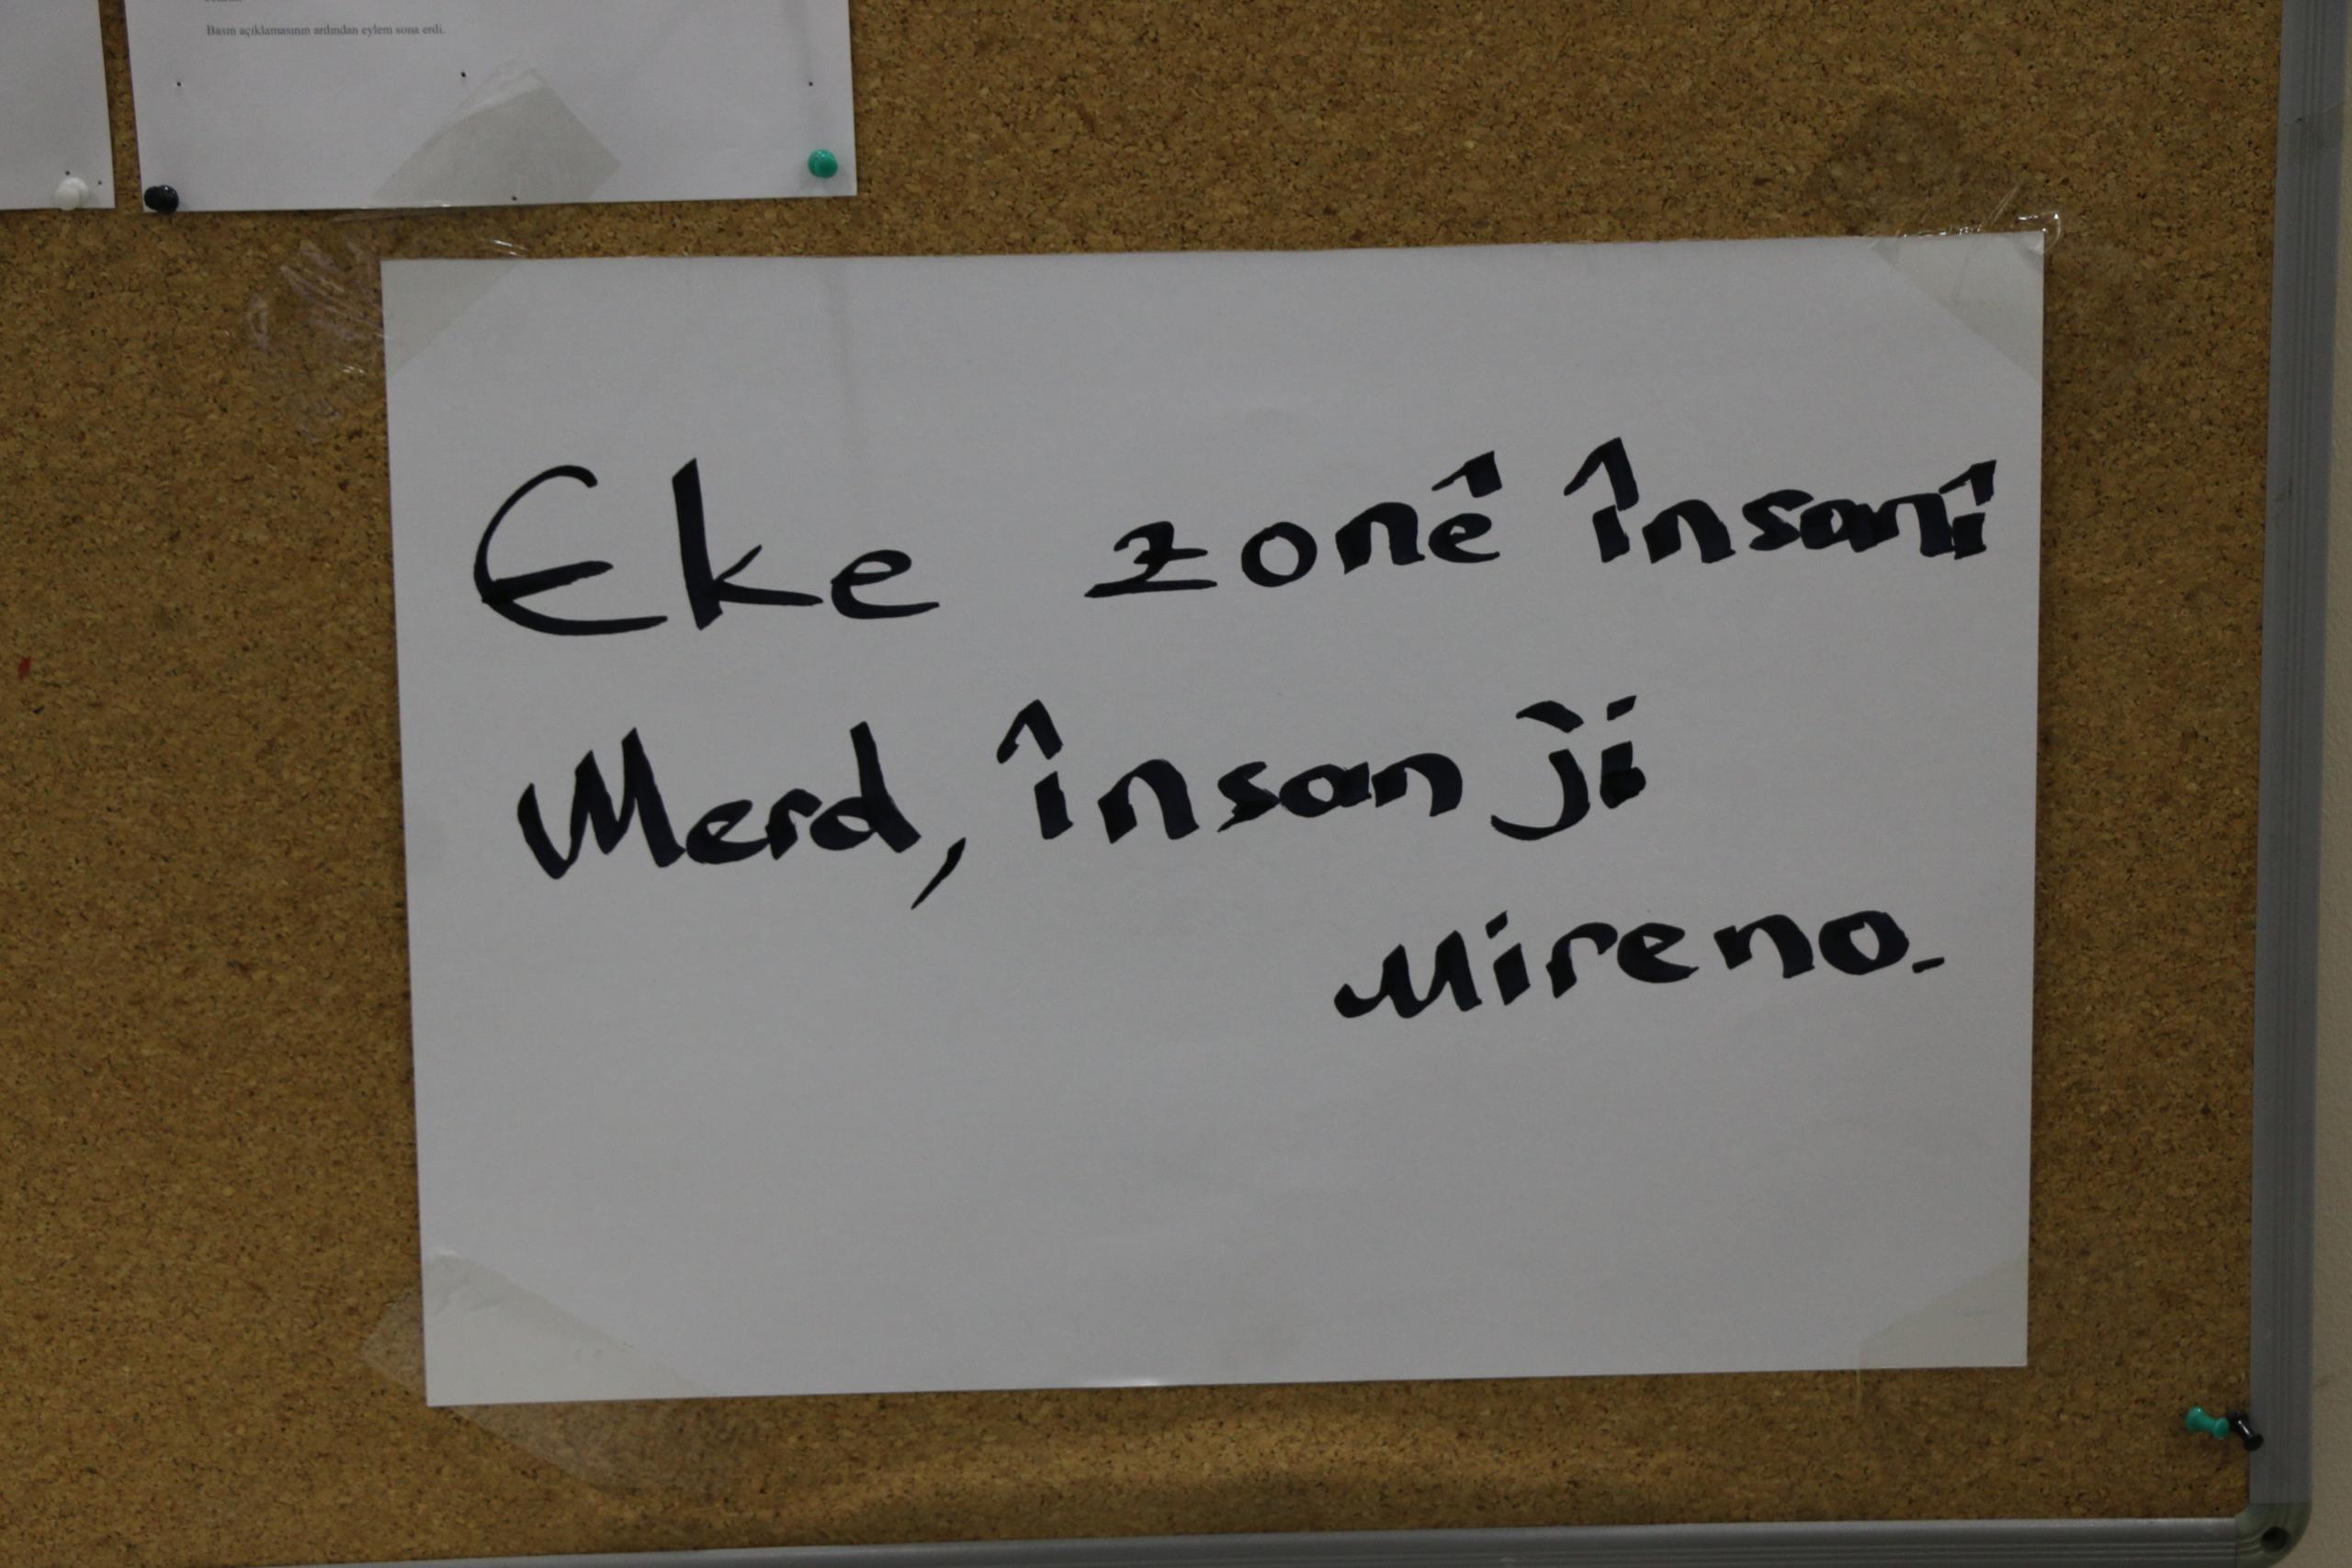 Basın açıklamasının ardından eylem sona erdi.
Eke zonê însanî
Merd, însan ji
Mireno.